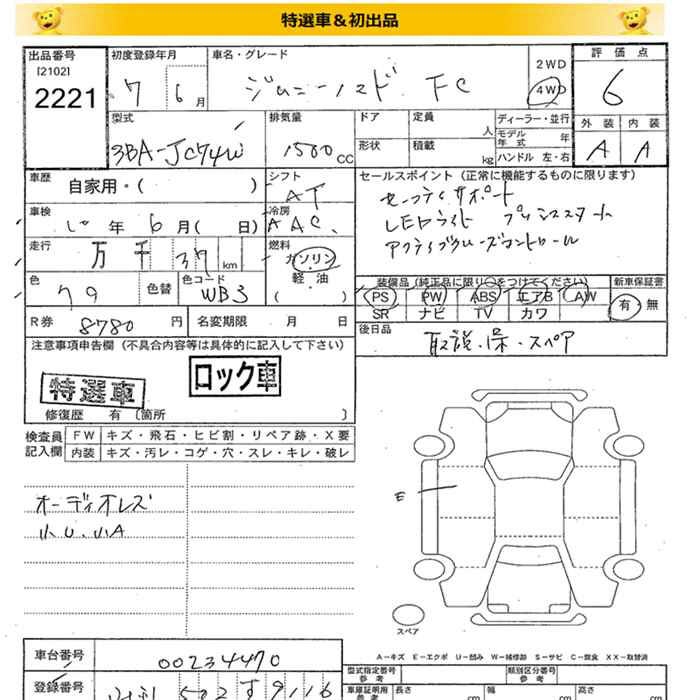 特選車＆初出品
出品番号 初度登録年月 車名・グレード 2WD 評価点
[2102] 2221 7 6月 ジムニーノマド FC 4WD 6
型式 排気量 ドア 定員 人 ディーラー・並行 外装 内装
3BA-JC74W 1500 CC 形状 積載 kg モデル年式 年 ハンドル 左・右 A A
車歴 自家用・( ) シフト AT セールスポイント (正常に機能するものに限ります)
車検 10年 6月( 日) 冷房 AAC セーフティサポート
LEDライト プッシュスタート
走行 万 千 37 km 燃料 ガソリン アクティブクルーズコントロール
軽・油
( )
色 色替 色コード WB3 装備品 (純正品に限り○をつけてください) 新車保証書
PS PW ABS エアB AW 有 無
SR ナビ TV カワ
R券 8780円 名変期限 月 日 後日品
取説.保.スペア
注意事項申告欄 (不具合内容等は具体的に記入して下さい)
特選車 ロック車
修復歴 有 (箇所 )
検査員記入欄 FW キズ・飛石・ヒビ割・リペア跡・X要
内装 キズ・汚レ・コゲ・穴・スレ・キレ・破レ
オーディオレス
小U.小A
E
スペア
A-キズ E-エクボ U-凹み W-補修跡 S-サビ C-腐食 XX-取替済
車台番号 00234470
登録番号 502 す 9116
型式指定番号 参考 類別区分番号 参考
車庫証明用 参考 長さ 幅 高さ